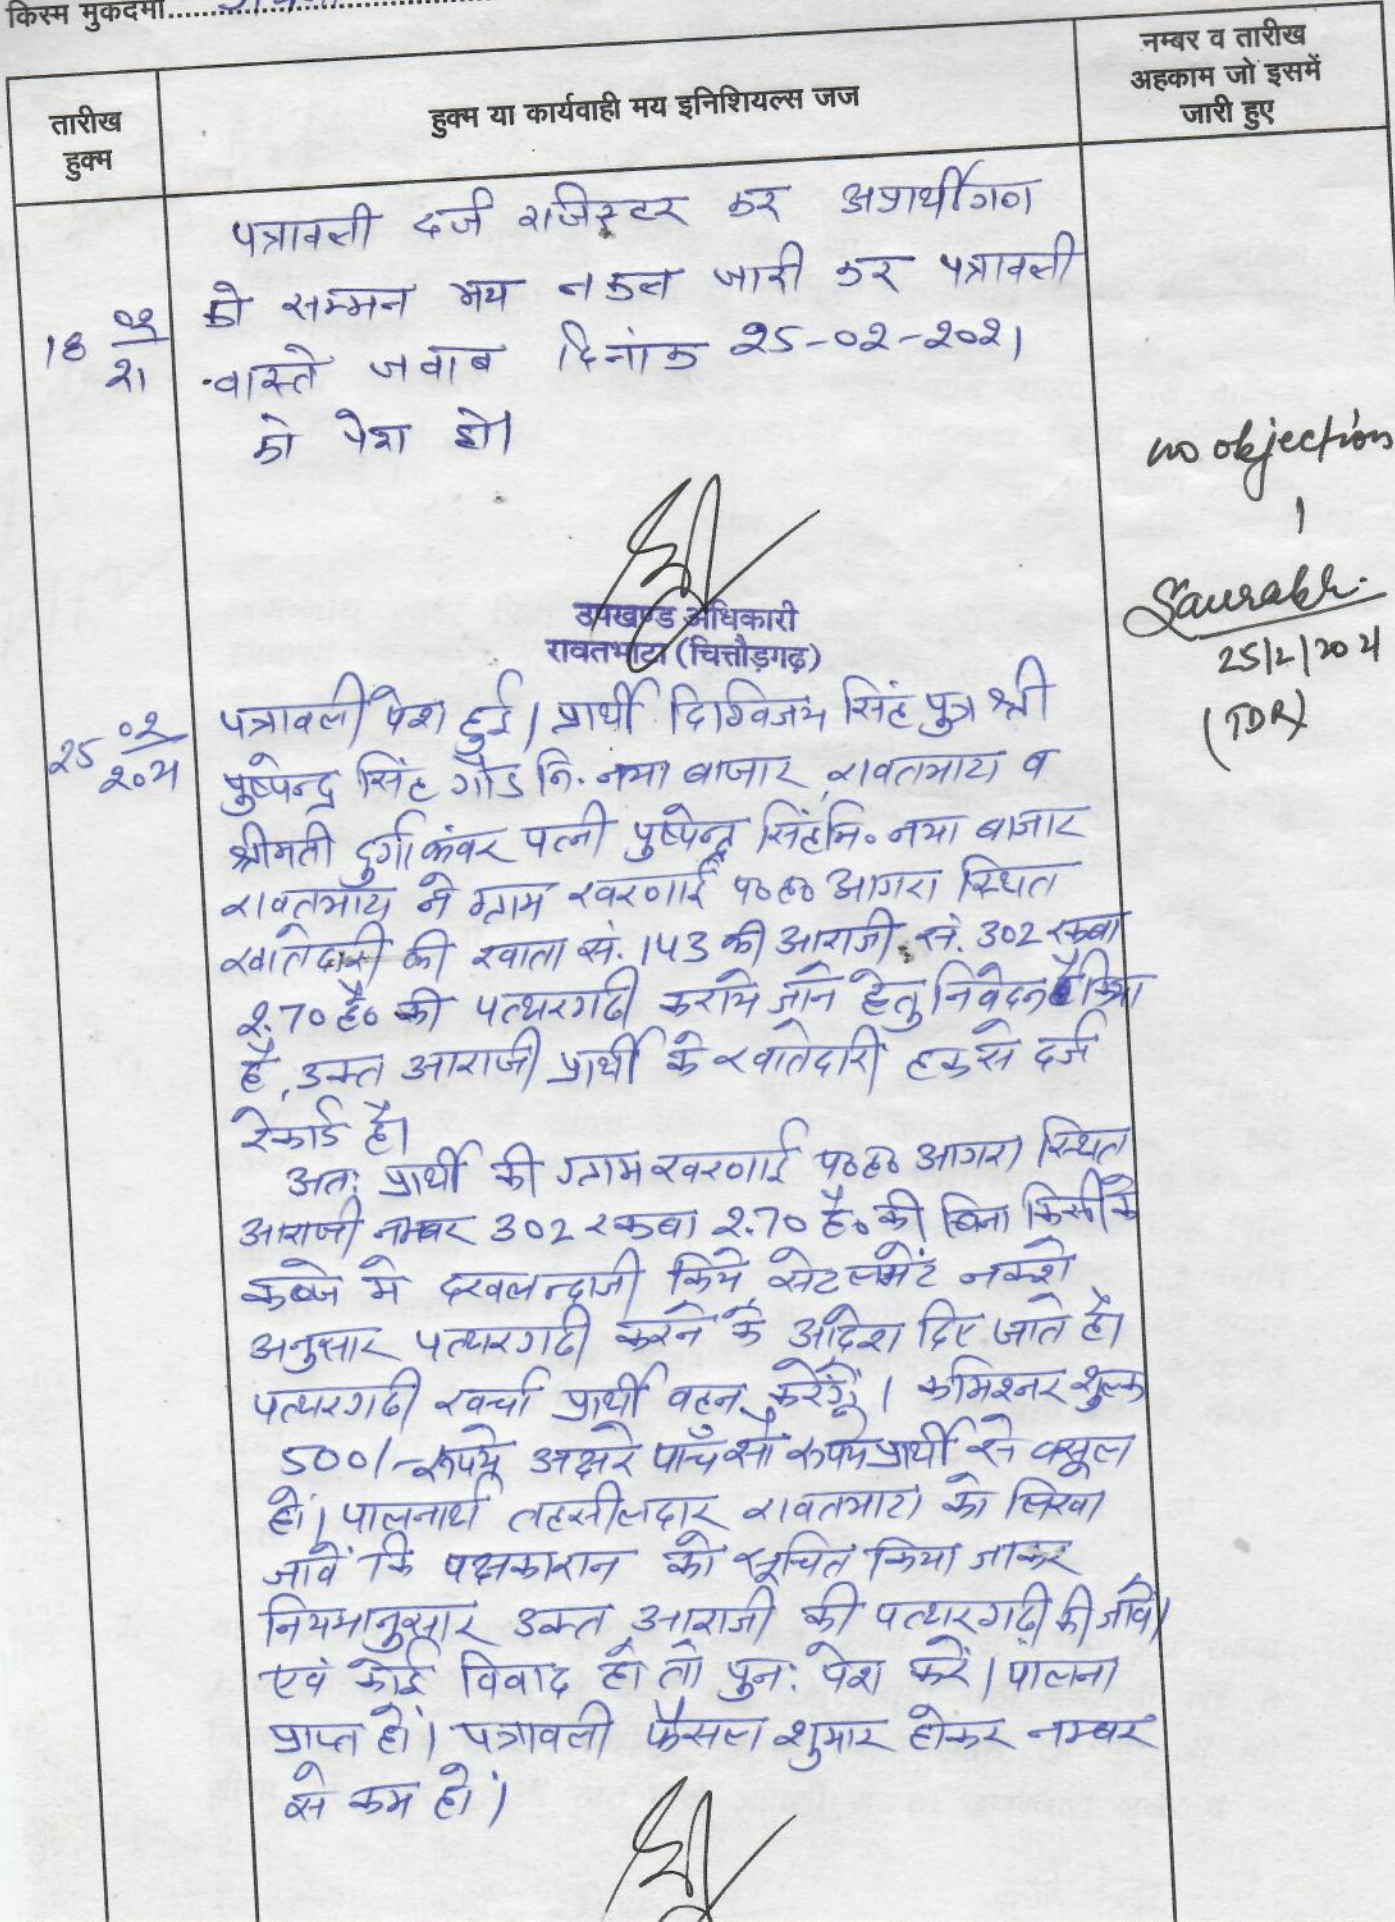 किस्म मुकदमा
तारीख हुक्म
हुक्म या कार्यवाही मय इनिशियल्स जज
नम्बर व तारीख
अहकाम जो इसमें
जारी हुए
18 02/21
पत्रावली दर्ज राजिस्टर कर अप्रार्थीगण
को सम्मन मय नकल जारी कर पत्रावली
वास्ते जवाब दिनांक 25-02-2021
को पेश हो।
उपखण्ड अधिकारी
रावतभाटा (चित्तौड़गढ़)
no objection
Saurabh
25/2/2021
(TDR)
25 02/2021
पत्रावली पेश हुई। प्रार्थी दिग्विजय सिंह पुत्र श्री
पुष्पेन्द्र सिंह गौड नि. नया बाजार रावतभाटा व
श्रीमती दुर्गाकंवर पत्नी पुष्पेन्द्र सिंह नि० नया बाजार
रावतभाटा ने ग्राम खरणाई प०ह० आगरा स्थित
खातेदारी की खाता सं. 143 की आराजी सं. 302 रकबा
2.70 है० की पत्थरगढी कराये जाने हेतु निवेदन किया
है, उक्त आराजी प्रार्थी के खातेदारी हक से दर्ज
रेकार्ड है।
अतः प्रार्थी की ग्राम खरणाई प०ह० आगरा स्थित
आराजी नम्बर 302 रकबा 2.70 है० की बिना किसी के
कब्जे मे दखलन्दाजी किये सेटलमेंट नक्शे
अनुसार पत्थरगढी करने के आदेश दिए जाते है।
पत्थरगढी खर्चा प्रार्थी वहन करेंगे। कमिश्नर शुल्क
500/- रूपये अक्षरे पाँच सौ रूपये प्रार्थी से वसूल
हो। पालनार्थ तहसीलदार रावतभाटा को लिखा
जावें कि पक्षकारान को सूचित किया जाकर
नियमानुसार उक्त आराजी की पत्थरगढी की जावे।
एवं कोई विवाद हो तो पुन: पेश करें। पालना
प्राप्त हो। पत्रावली फैसल शुमार होकर नम्बर
से कम हो।